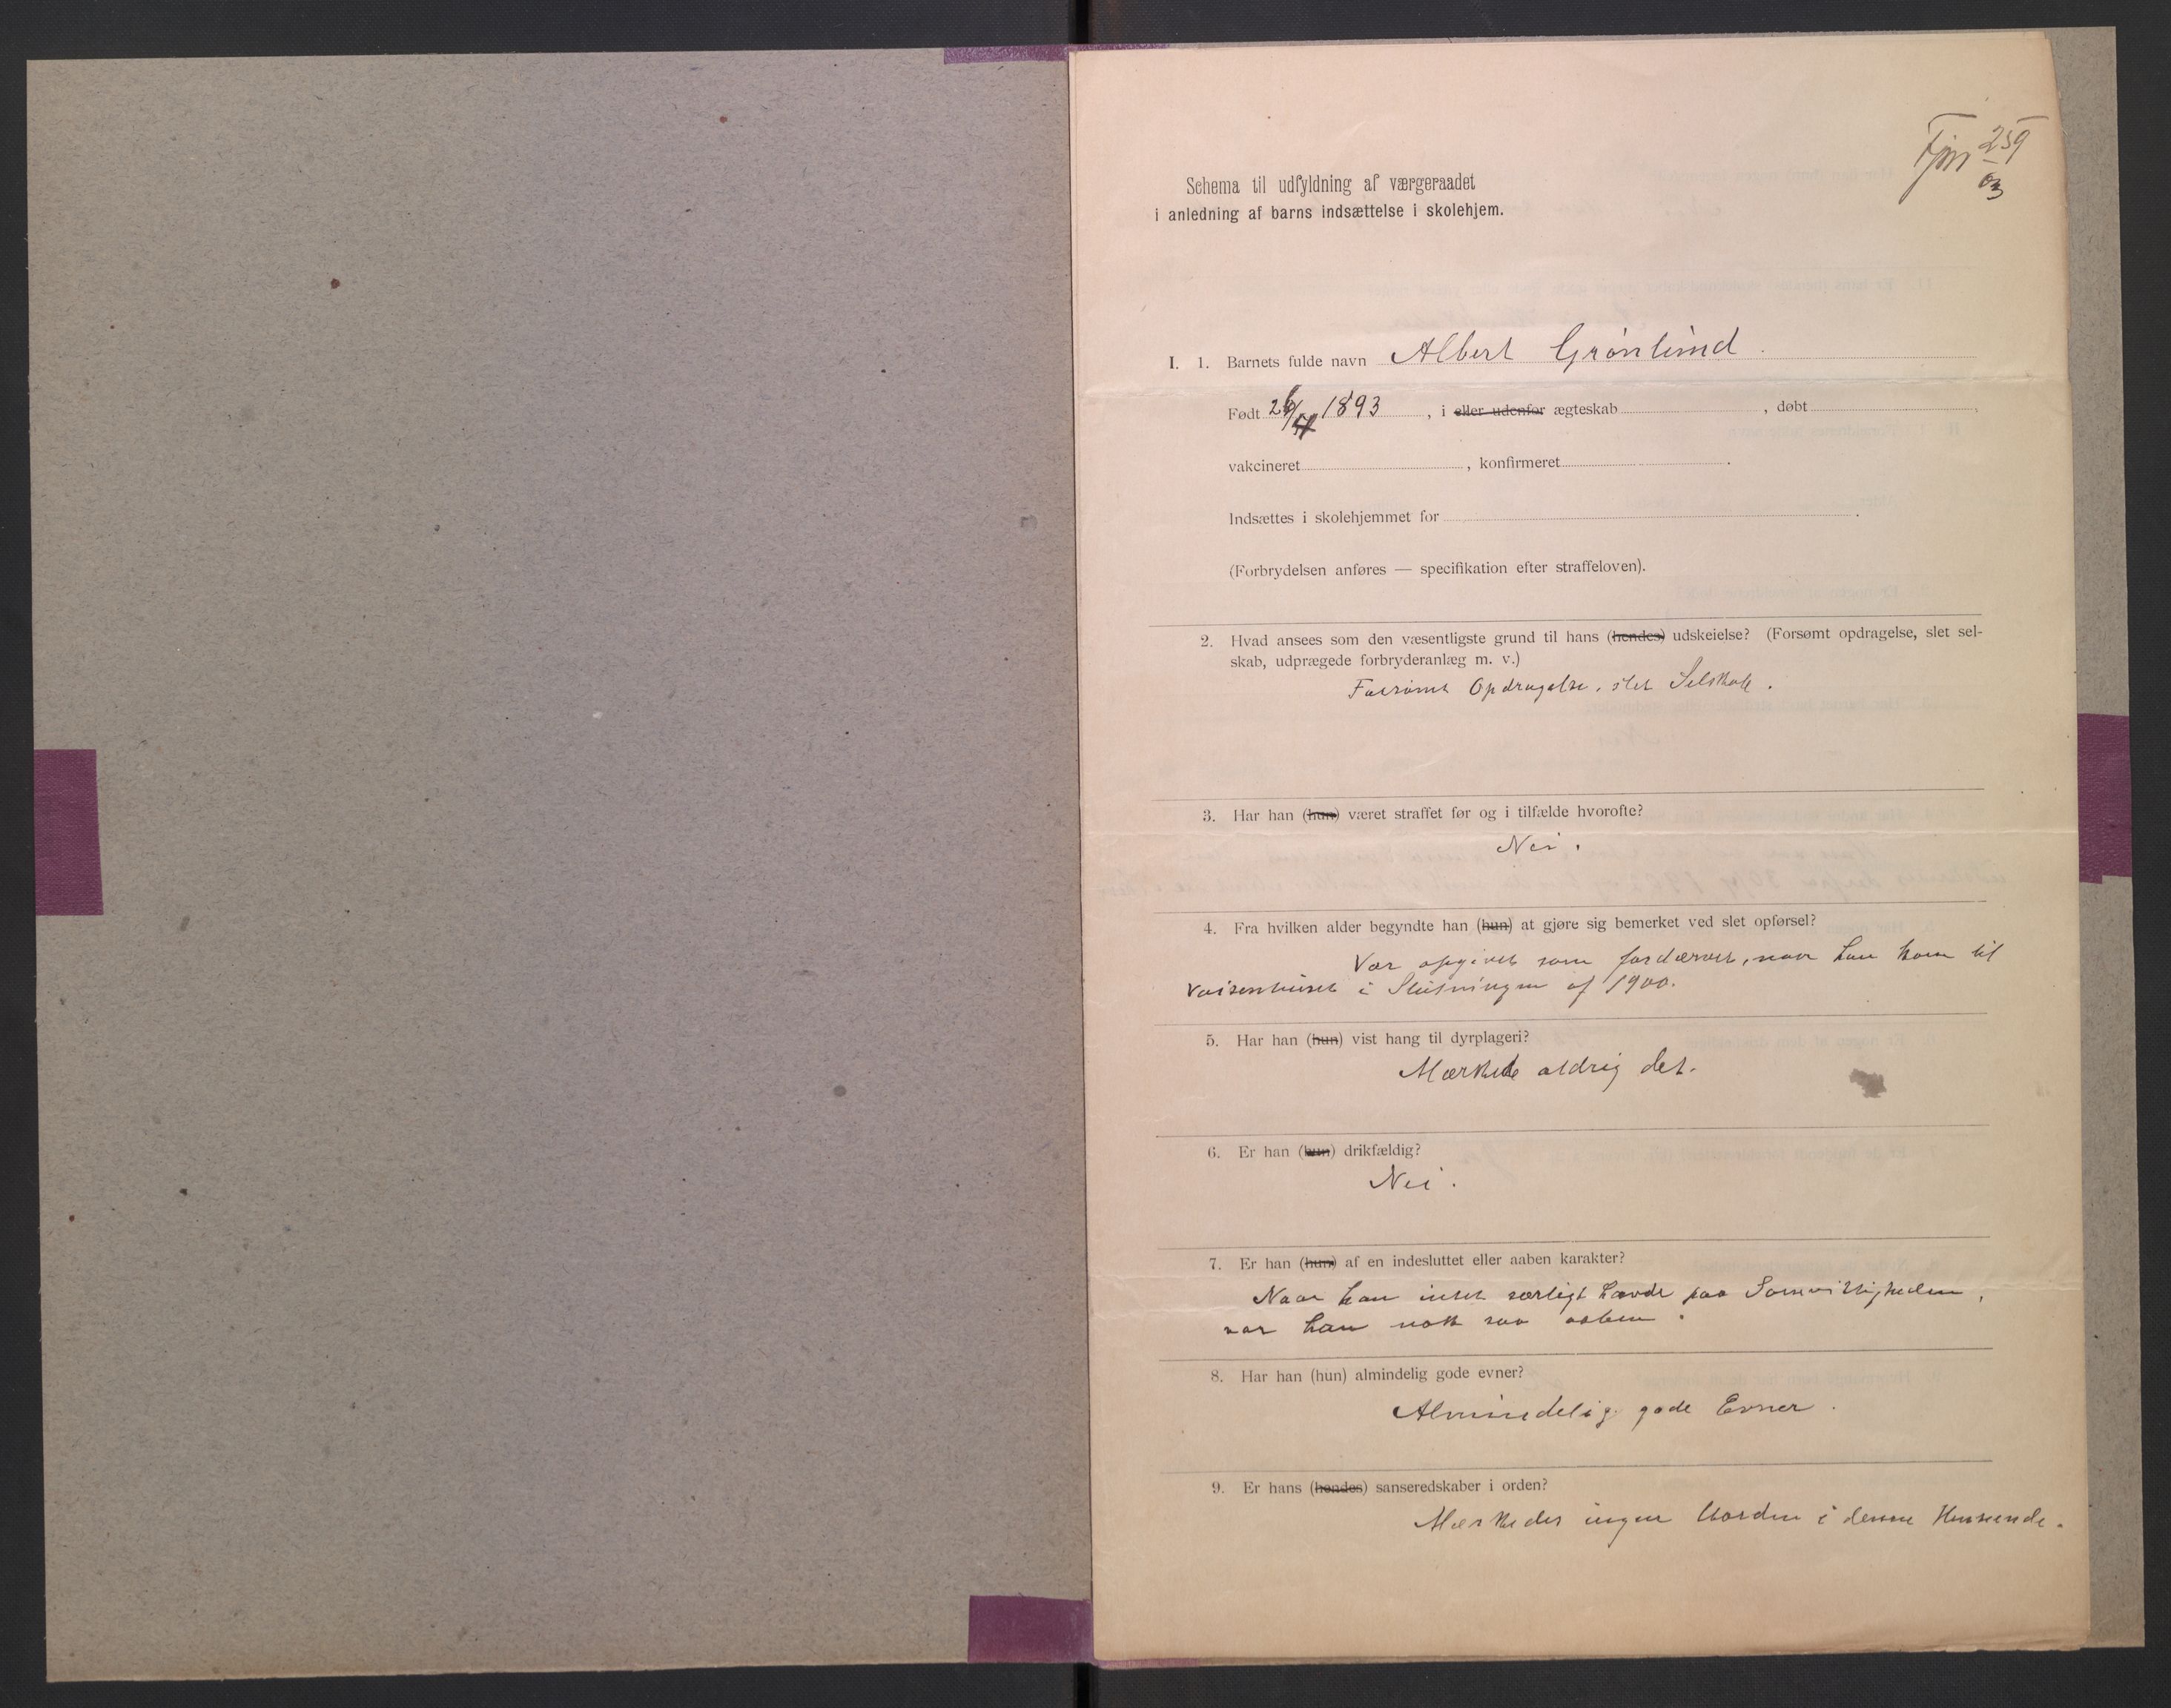 259
03
Schema til udfyldning af værgeraadet
i anledning af barns indsættelse i skolehjem.
I. 1. Barnets fulde navn Albert Grönlund.
Født 1893, i eller udenfor ægteskab , døbt
vakcineret , konfirmeret .
Indsættes i skolehjemmet for .
(Forbrydelsen anføres — specifikation efter straffeloven).
2. Hvad ansees som den væsentligste grund til hans (hendes) udskeielse? (Forsømt opdragelse, slet sel-
skab, udprægede forbryderanlæg m. v.)
Forsömt Opdragelse, slet Selskab.
3. Har han (hun) været straffet før og i tilfælde hvorofte?
Nei.
4. Fra hvilken alder begyndte han (hun) at gjøre sig bemerket ved slet opførsel?
Var opgivet som fordærvet, naar han kom til
Vaisenhuset i Slutningen af 1900.
5. Har han (hun) vist hang til dyrplageri?
Mærkede aldrig det.
6. Er han (hun) drikfældig?
Nei.
7. Er han (hun) af en indesluttet eller aaben karakter?
Naar han intet særligt havde paa Samvittigheden,
var han nok saa aaben.
8. Har han (hun) almindelig gode evner?
Almindelig gode Evner.
9. Er hans (hendes) sanseredskaber i orden?
Mærkedes ingen Uorden i denne Henseende.